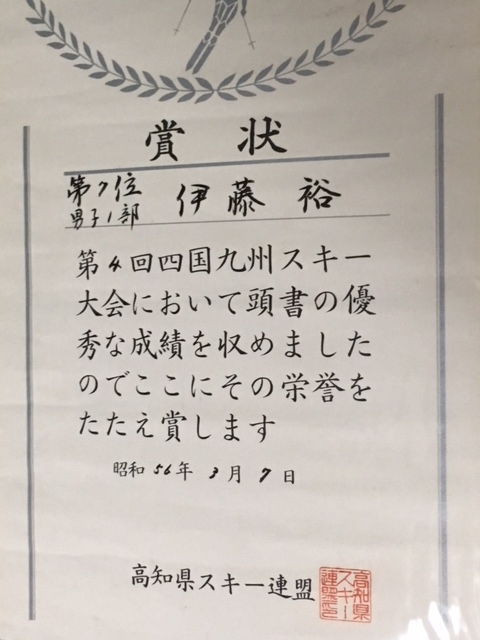 賞状
第7位
男子1部
伊藤 裕
第4回四国九州スキー
大会において頭書の優
秀な成績を収めました
のでここにその栄誉を
たたえ賞します
昭和56年3月7日
高知県スキー連盟
高知県
スキー
連盟印